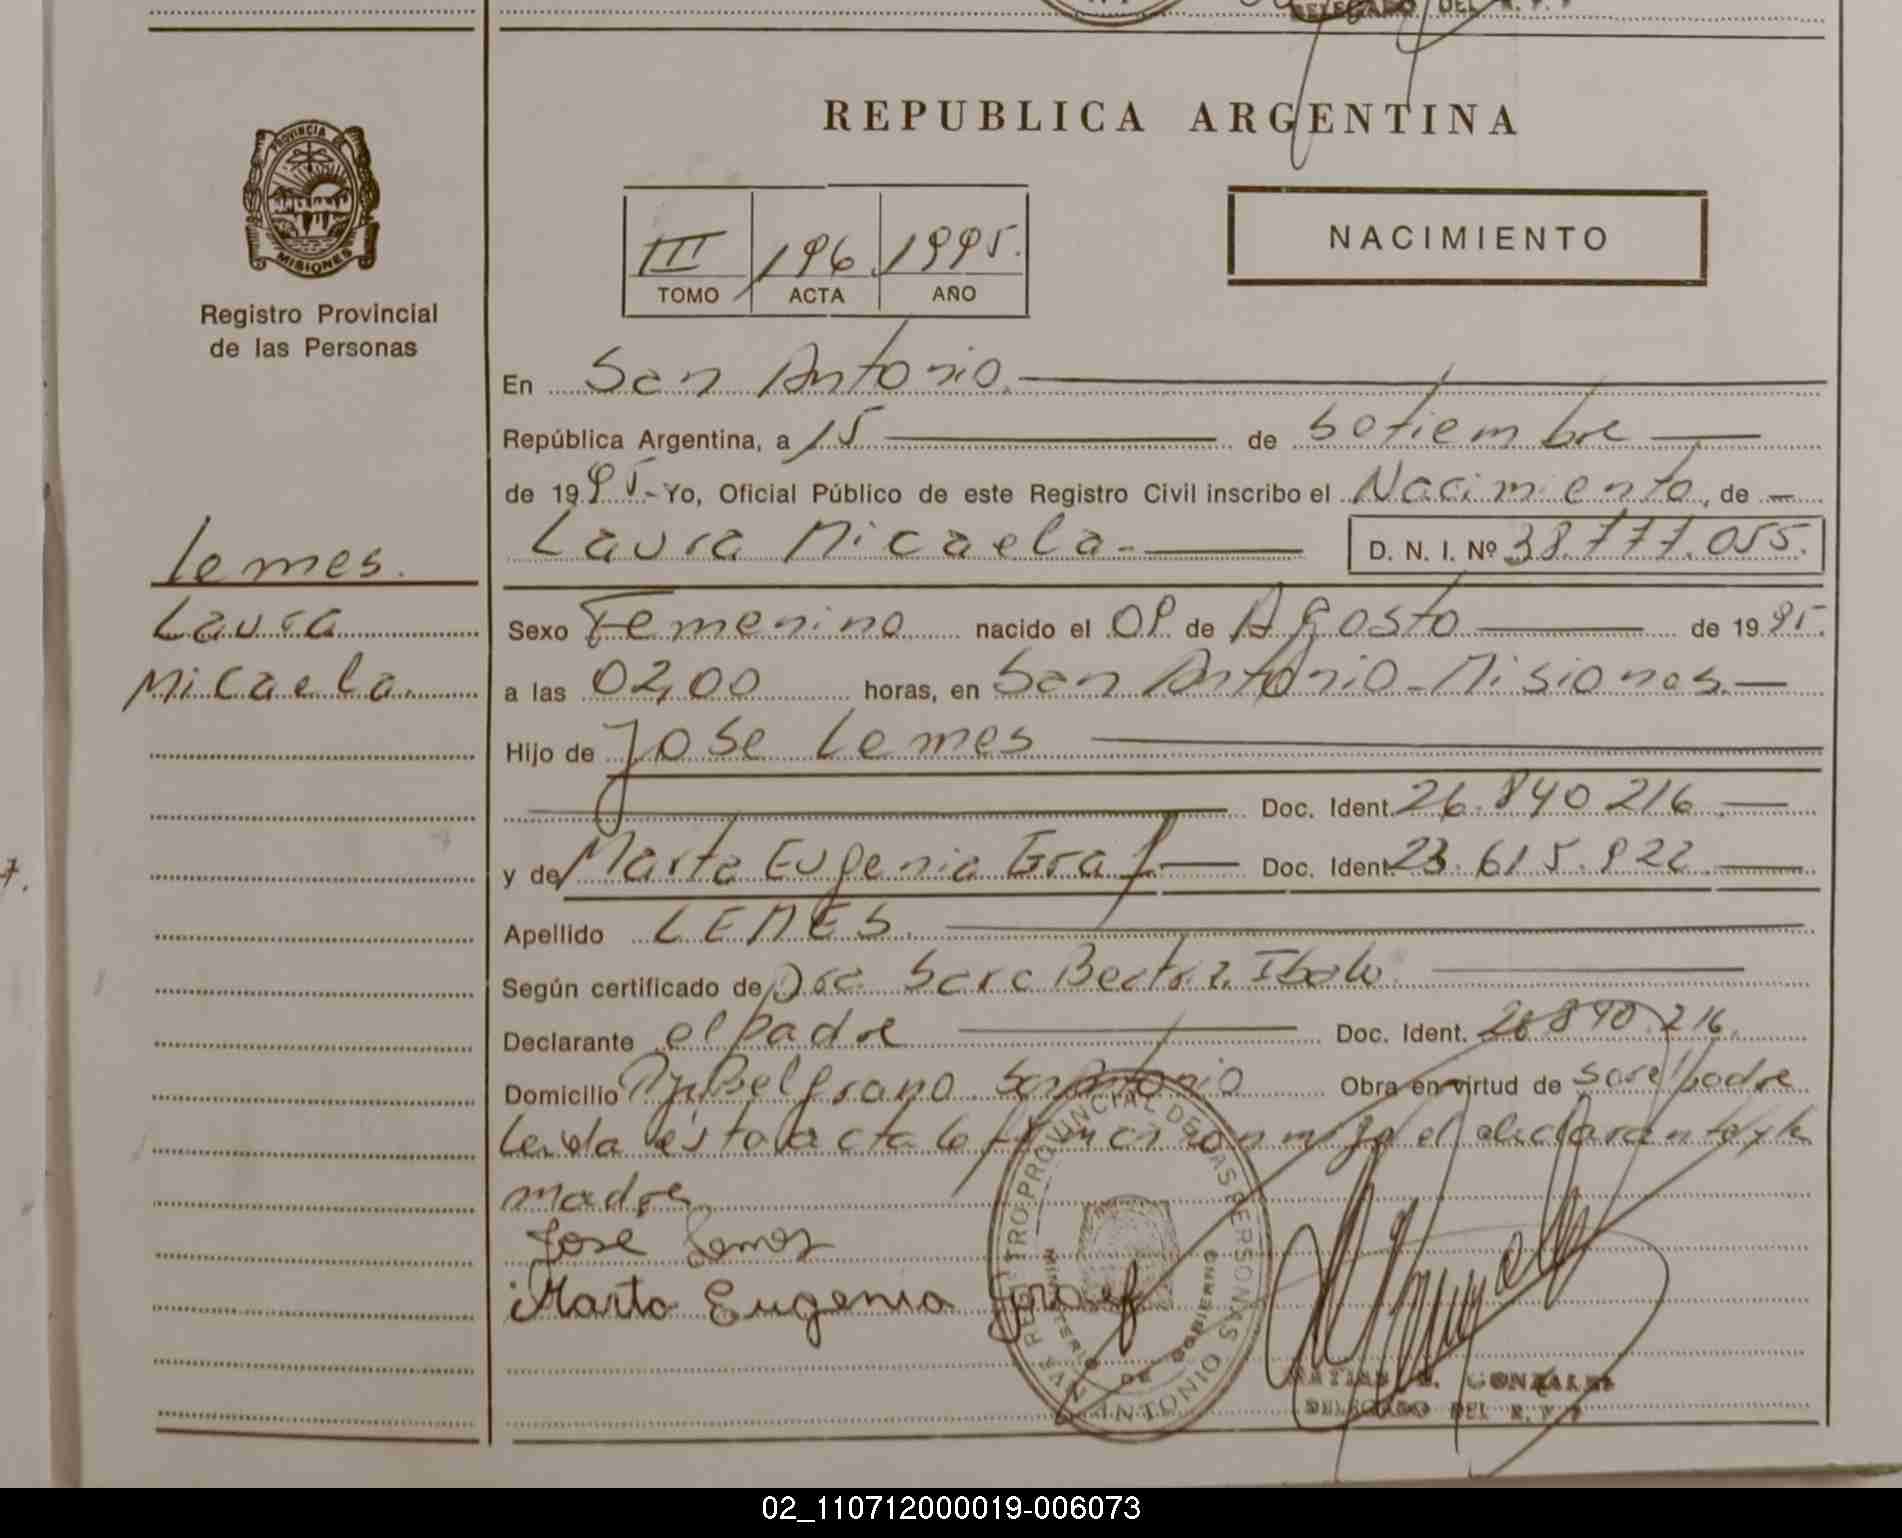 DELEGADO DEL R. P. P
REPUBLICA ARGENTINA
PROVINCIA DE MISIONES
Registro Provincial
de las Personas
III 196 1995.
TOMO ACTA AÑO
NACIMIENTO
En San Antonio.
República Argentina, a 15 de Setiembre
de 1995- Yo, Oficial Público de este Registro Civil inscribo el Nacimiento, de
Laura Micaela - D. N. I. Nº 38.777.055.
Lemes.
Laura
Micaela.
Sexo Femenino nacido el 09 de Agosto de 1995.
a las 02,00 horas, en San Antonio - Misiones.-
Hijo de Jose Lemes
Doc. Ident. 26.840.216
y de Marta Eugenia Graf Doc. Ident. 23.615.922
Apellido LEMES.
Según certificado de Dra. Sara Beatriz
Declarante el padre Doc. Ident. 26.840.216.
Domicilio Belgrano San Antonio Obra en virtud de ser el padre
Leida ésta acta la firman conmigo el declarante y la
madre
José Lemes
Marta Eugenia Graf
REGISTRO PROVINCIAL DE LAS PERSONAS
MINISTERIO DE GOBIERNO
SAN ANTONIO
GONZALEZ
DELEGADO DEL R. P. P
7.
02_110712000019-006073